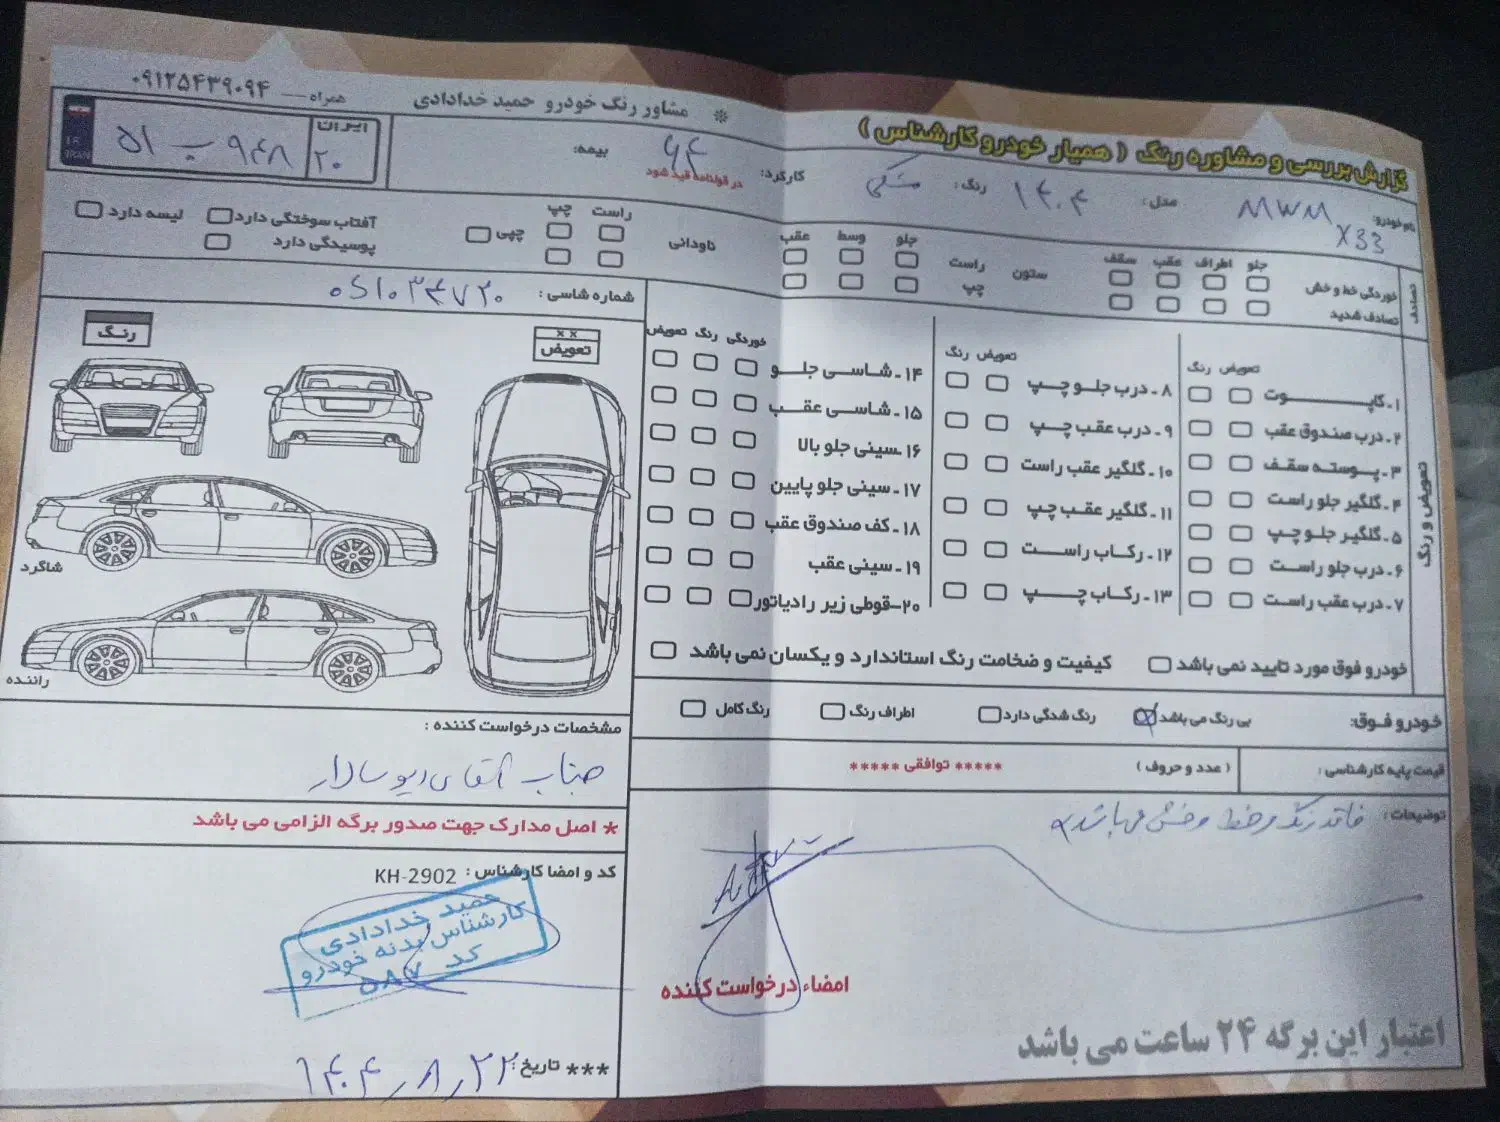 * مشاور رنگ خودرو حمید خدادادی
همراه ۰۹۱۲۵۴۳۹۰۹۴
گزارش بررسی و مشاوره رنگ ( همیار خودرو کارشناس )
نام خودرو: MWM X33
مدل: ۱۴۰۴
رنگ: مشکی
کارکرد: ۶۴
در قولنامه قید شود
بیمه:
ایران ۲۰
۹۴۸ ب ۵۱
I.R. IRAN
تصادف
جلو اطراف عقب سقف
خوردگی خط و خش
تصادف شدید
ستون
جلو وسط عقب
راست
چپ
ناودانی
راست چپ
چپی
آفتاب سوختگی دارد
لیسه دارد
پوسیدگی دارد
شماره شاسی: ۰۵۱۰۳۴۷۲۰
تعویض و رنگ
تعویض رنگ
۱ـ کاپوت
۲ـ درب صندوق عقب
۳ـ پوسته سقف
۴ـ گلگیر جلو راست
۵ـ گلگیر جلو چپ
۶ـ درب جلو راست
۷ـ درب عقب راست
تعویض رنگ
۸ـ درب جلو چپ
۹ـ درب عقب چپ
۱۰ـ گلگیر عقب راست
۱۱ـ گلگیر عقب چپ
۱۲ـ رکاب راست
۱۳ـ رکاب چپ
خوردگی رنگ تعویض
۱۴ـ شاسی جلو
۱۵ـ شاسی عقب
۱۶ـ سینی جلو بالا
۱۷ـ سینی جلو پایین
۱۸ـ کف صندوق عقب
۱۹ـ سینی عقب
۲۰–قوطی زیر رادیاتور
×× تعویض
رنگ
شاگرد
راننده
خودرو فوق مورد تایید نمی باشد
کیفیت و ضخامت رنگ استاندارد و یکسان نمی باشد
خودرو فوق:
بی رنگ می باشد
رنگ شدگی دارد
اطراف رنگ
رنگ کامل
قیمت پایه کارشناسی:
( عدد و حروف )
***** توافقی *****
توضیحات: فاقد رنگ و خط و خش می باشد
مشخصات درخواست کننده :
جناب آقای دیو سالار
* اصل مدارک جهت صدور برگه الزامی می باشد
کد و امضا کارشناس : KH-2902
حمید خدادادی
کارشناس بدنه خودرو
کد ۵۸۷
امضاء درخواست کننده
*** تاریخ: ۱۴۰۴٫۸٫۲۲
اعتبار این برگه ۲۴ ساعت می باشد